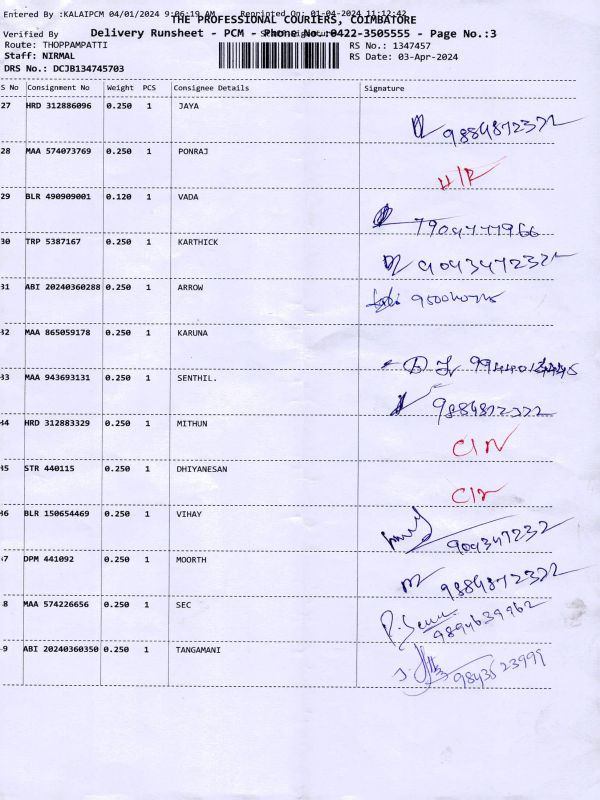 Entered By :KALAIPCM 04/01/2024 9:06:19 AM Reprinted On: 01-04-2024 11:12:42
THE PROFESSIONAL COURIERS, COIMBATORE
Verified By
Delivery Runsheet - PCM - Phone No.:0422-3505555 - Page No.:3
Route: THOPPAMPATTI RS No.: 1347457
Staff: NIRMAL RS Date: 03-Apr-2024
DRS No.: DCJB134745703
S No Consignment No Weight PCS Consignee Details Signature
27 HRD 312886096 0.250 1 JAYA 9884872372
28 MAA 574073769 0.250 1 PONRAJ
29 BLR 490909001 0.120 1 VADA 7904777966
30 TRP 5387167 0.250 1 KARTHICK
31 ABI 20240360288 0.250 1 ARROW
32 MAA 865059178 0.250 1 KARUNA
33 MAA 943693131 0.250 1 SENTHIL. 9884872372
34 HRD 312883329 0.250 1 MITHUN
35 STR 440115 0.250 1 DHIYANESAN
36 BLR 150654469 0.250 1 VIHAY 904347232
37 DPM 441092 0.250 1 MOORTH 9884872372
38 MAA 574226656 0.250 1 SEC 9894639962
39 ABI 20240360350 0.250 1 TANGAMANI 9843523999